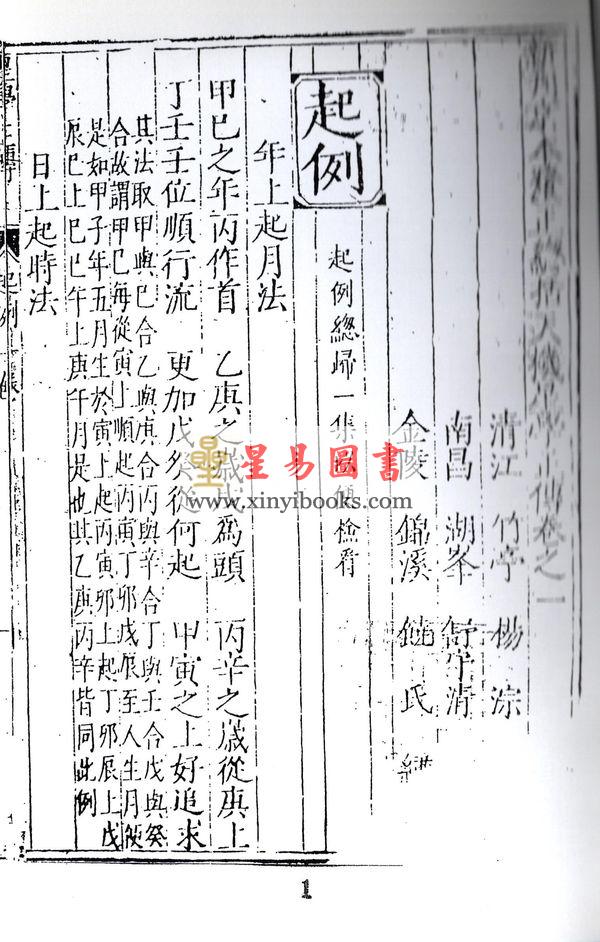 卷之一
清江 竹亭 楊 淙
南昌 湖峯 舒 清
金陵 錦溪 氏
起例
起例總歸一集以便檢看
年上起月法
甲巳之年丙作首 乙庚之歲戊爲頭 丙辛之歲從庚上
丁壬壬位順行流 更加戊癸從何起 甲寅之上好追求
其法取甲與巳合乙與庚合丙與辛合丁與壬合戊與癸
合故謂甲巳每從寅上順起丙寅丁卯戊辰至人生月
是如甲子年五月生於寅上起丙寅卯上起丁卯辰上戊
辰巳上巳巳午上庚午月是也其乙庚丙辛皆同此例
日上起時法
起例
星易圖書
www.xinyibooks.com
1